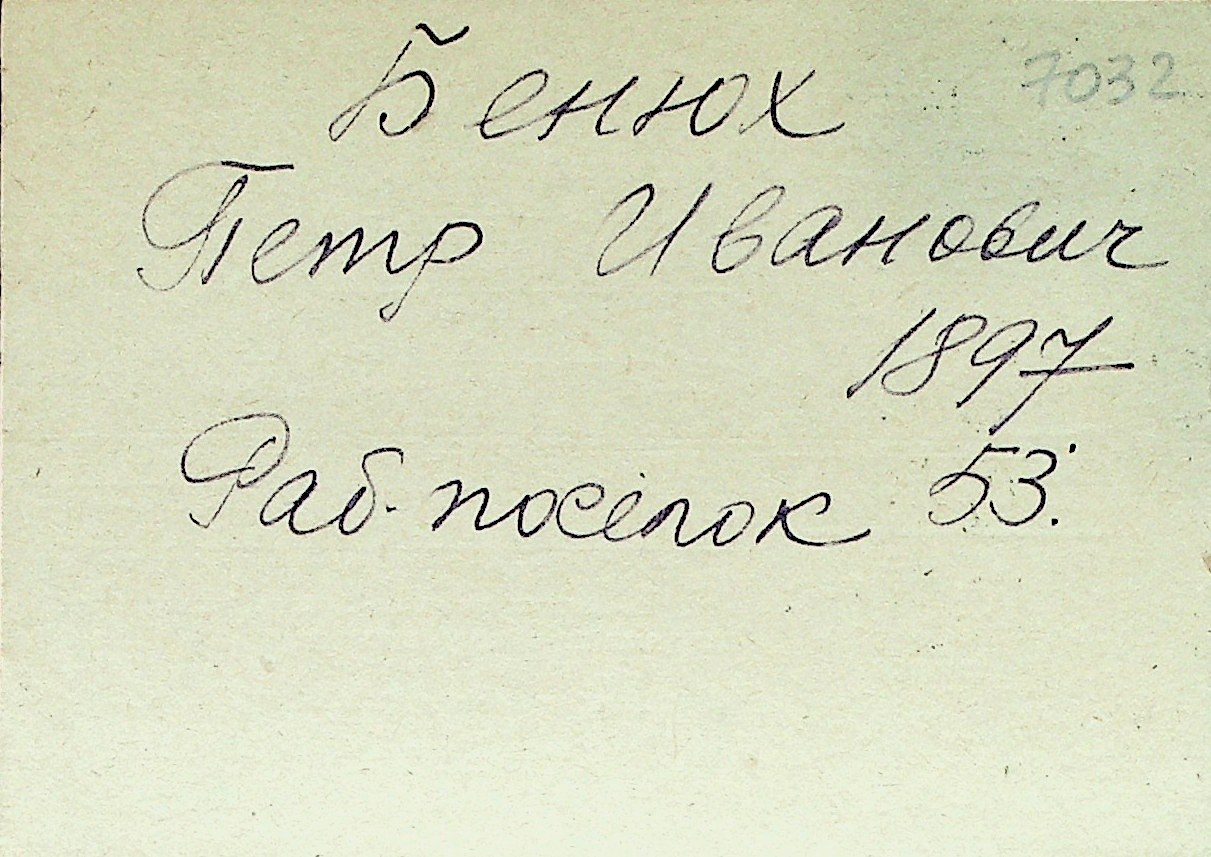 7032
Бенюх
Петр Иванович
1897
Раб. посёлок 53.